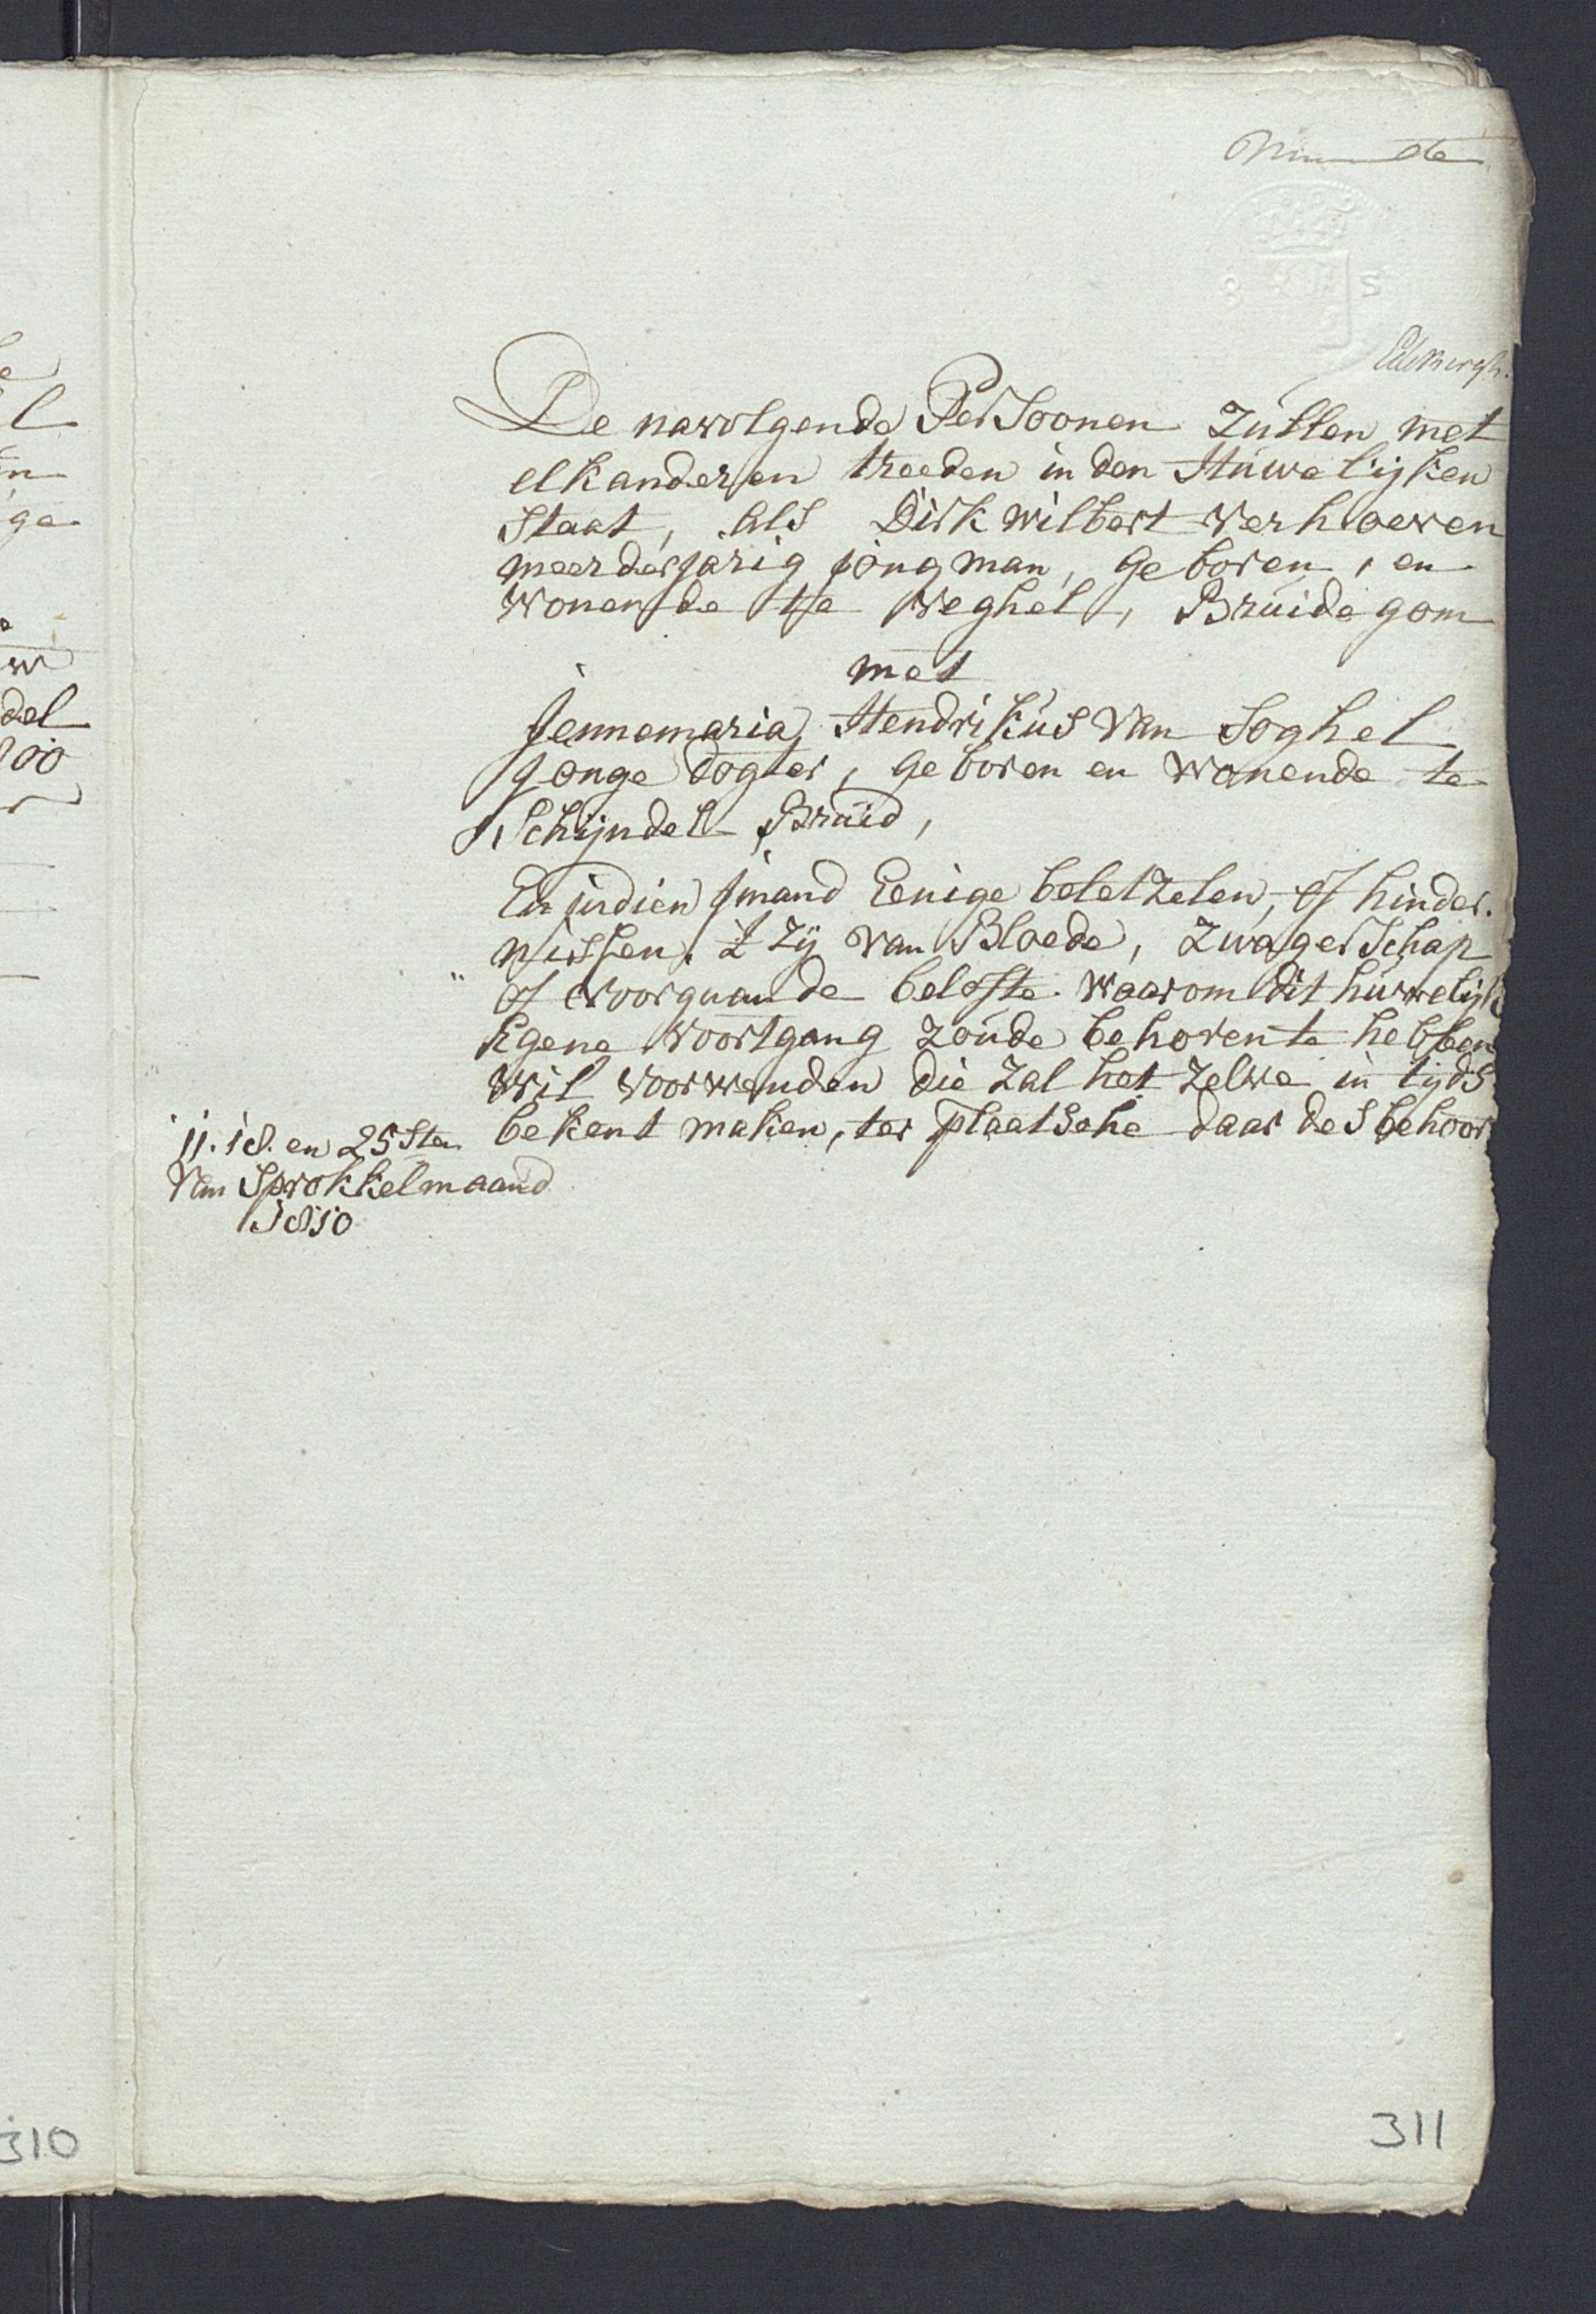 De navolgende Persoonen Zullen met
elkanderen treeden in den Huwelijken
Staat, als Dirk wilbert verhoeven
meerderjarig jongman, geboren, en
wonende te Veghel, Bruidegom
met
Jennemaria Hendrikus van Soghel
jonge dogter, geboren en wonende te
Schijndel Bruid,
En indien jmand Eenige beletzelen, of hinder.
nissen. t zij van Bloede, Zwagerschap
of voorgaande belofte. waarom dit huwelijk
Egene voortgang zoude behoren te hebben
wil voorwenden die Zal het Zelve in tijds
bekent maken, ter plaatsche daar des behoor
11. 18. en 25 sten
van Sprokkelmaand
1810
311
l
in
ge
del
310